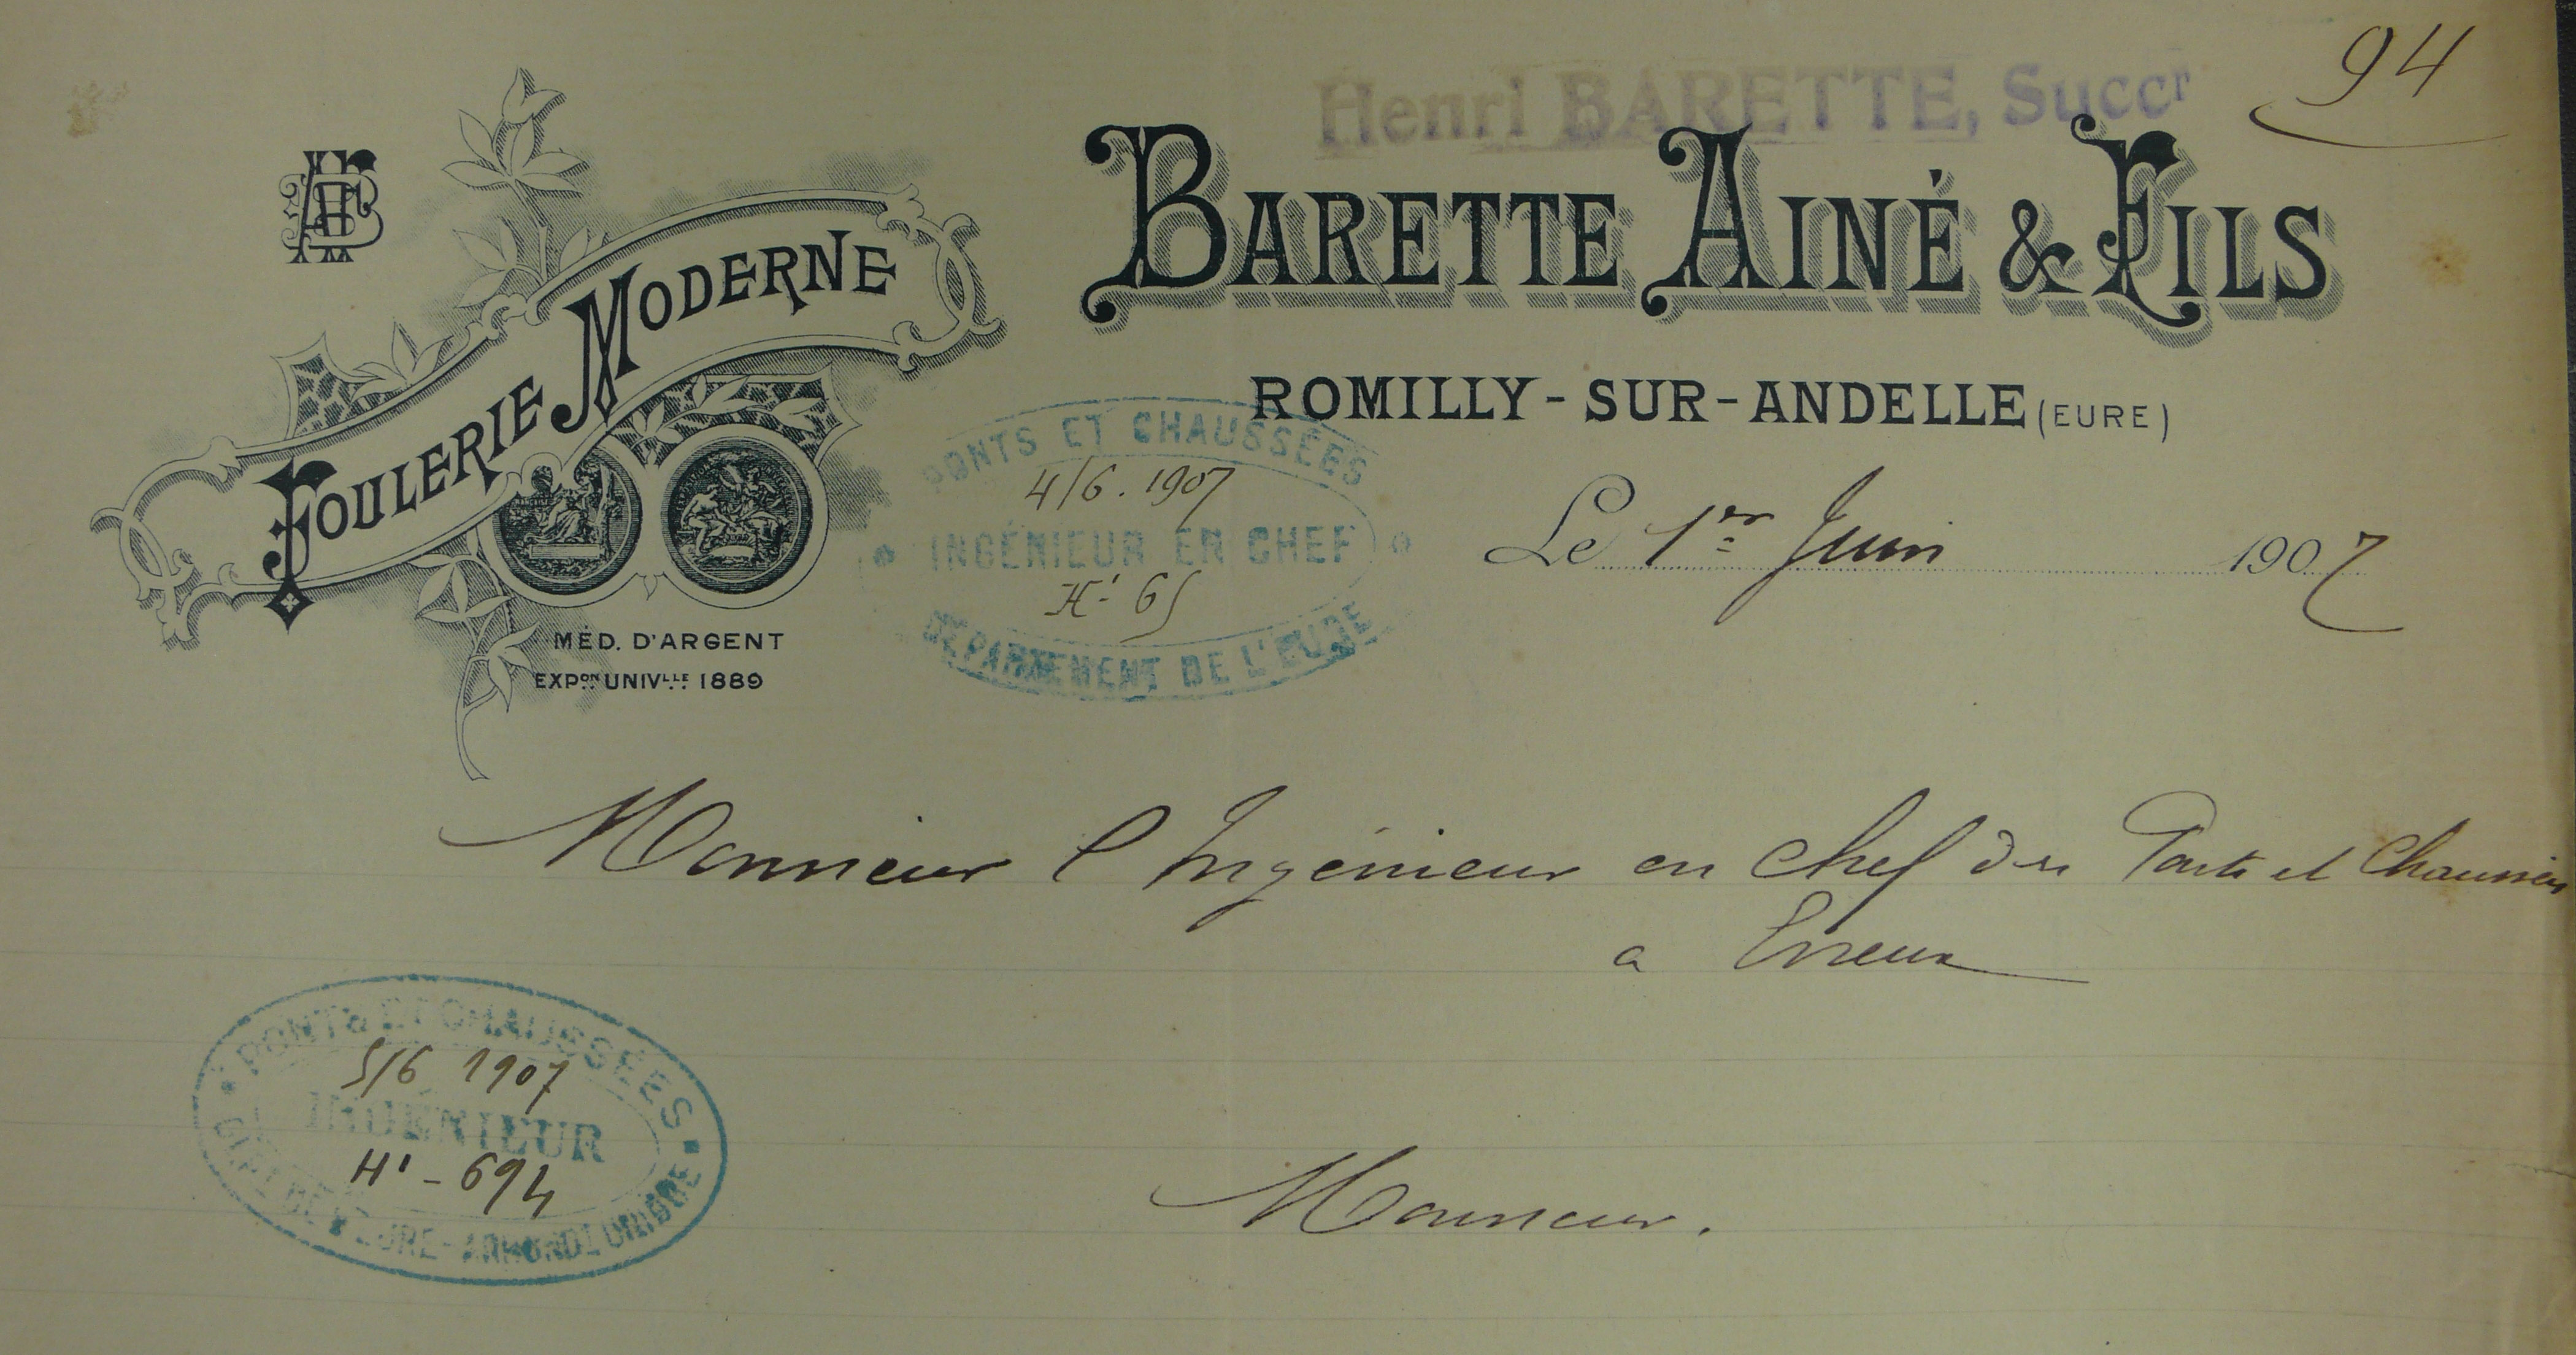 94
Henri BARETTE, Succr
BARETTE AINÉ & FILS
FOULERIE MODERNE
ROMILLY-SUR-ANDELLE (EURE)
MÉD. D'ARGENT
EXPON UNIVLLE 1889
PONTS ET CHAUSSÉES
4/6. 1907
INGÉNIEUR EN CHEF
H' 65
DÉPARTEMENT DE L'EURE
Le 1er Juin 1907
Monsieur l'Ingénieur en chef des Ponts et Chaussées
a Evreux
PONTS ET CHAUSSÉES
5/6 1907
INGÉNIEUR
H' - 694
Monsieur.